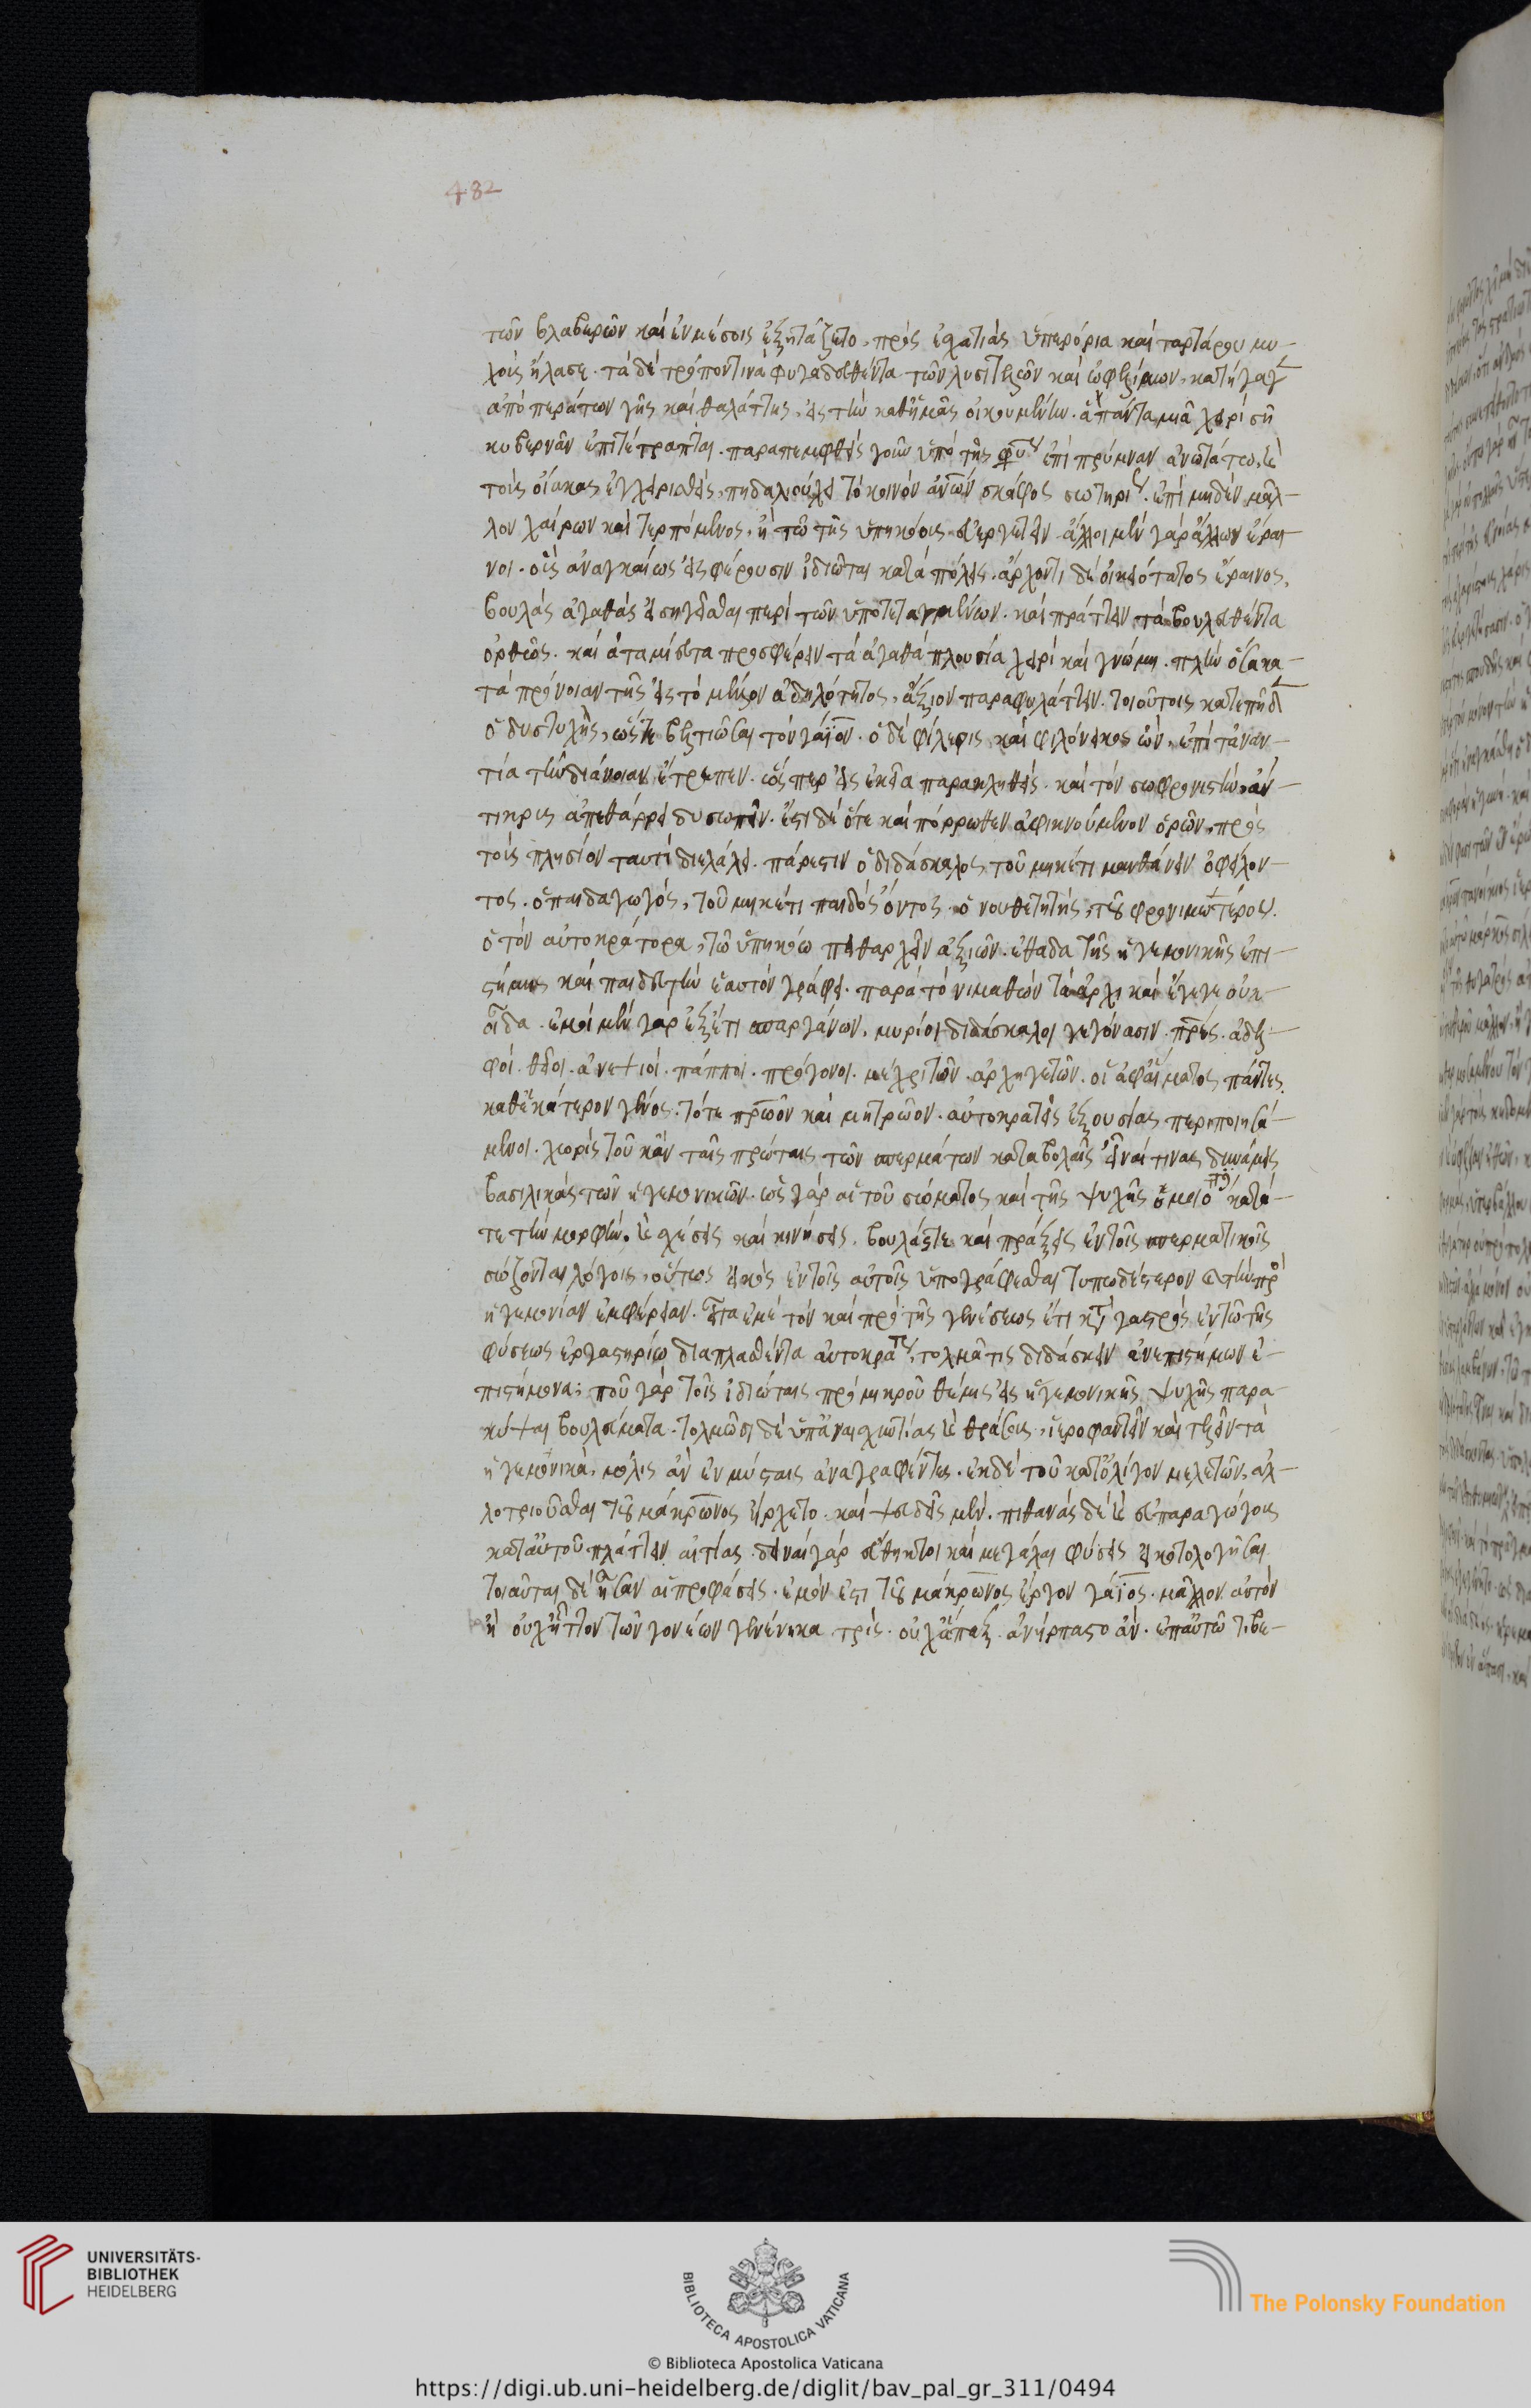 482
τῶν βλαβερῶν καὶ ἐν μέσοις ἐξητάζετο, πρὸς ἐσχατιὰς ὑπερόρια καὶ ταρτάρου μυ-
χοὺς ἤλασε. τὰ δὲ τρόπον τινὰ φυγαδευθέντα τῶν λυσιτελῶν καὶ ὠφελίμων, κατήγαγ
ἀπὸ περάτων γῆς καὶ θαλάττης, εἰς τὴν καθ' ἡμᾶς οἰκουμένην. ἃ πάντα μιᾷ χειρὶ σῇ
κυβερνᾶν ἐπιτέτραπται. παραπεμφθεὶς γοῦν ὑπὸ τῆς φύσ ἐπὶ πρύμναν ἀνωτάτω, καὶ
τοὺς οἴακας ἐγχειρισθεὶς, πηδαλιούχει τὸ κοινὸν ἀνων σκάφος σωτηρί. ἐπὶ μηδὲν μᾶλ-
λον χαίρων καὶ τερπόμενος, ἢ τῷ τοὺς ὑπηκόους εὐεργετεῖν. ἄλλοι μὲν γὰρ ἄλλων ἔρα-
νοι. οὓς ἀναγκαίως εἰσφέρουσιν ἰδιῶται κατὰ πόλεις. ἄρχοντι δὲ οἰκειότατος ἔρανος,
βουλὰς ἀγαθὰς εἰσηγεῖσθαι περὶ τῶν ὑποτεταγμένων. καὶ πράττειν τὰ βουλευθέντα
ὀρθῶς. καὶ ἀταμίευτα προσφέρειν τὰ ἀγαθὰ πλουσίᾳ χειρὶ καὶ γνώμῃ. πλὴν ὅσα κα-
τὰ πρόνοιαν τῆς εἰς τὸ μέλλον ἀδηλότητος, ἄξιον παραφυλάττειν. τοιούτοις κατεπῇδ
ὁ δυστυχὴς, ὥστε βελτιῶσαι τὸν γάϊον. ὁ δὲ φίλερις καὶ φιλόνεικος ὢν, ἐπὶ τἀναν-
τία τὴν διάνοιαν ἔτρεπεν. ὥσπερ εἰς ἐκεῖνα παρακληθείς. καὶ τὸν σωφρονιστὴν ἀν-
τικρυς ἀπεθάρρει δυσωπεῖν. ἔστι δὲ ὅτε καὶ πόρρωθεν ἀφικνούμενον ὁρῶν, πρὸς
τοὺς πλησίον ταυτὶ διελάλει. πάρεστιν ὁ διδάσκαλος τοῦ μηκέτι μανθάνειν ὀφείλον-
τος. ὁ παιδαγωγὸς, τοῦ μηκέτι παιδὸς ὄντος. ὁ νουθετητὴς, τοῦ φρονιμωτέρου.
ὁ τὸν αὐτοκράτορα, τῷ ὑπηκόῳ πειθαρχεῖν ἀξιῶν. ἐθάδα τῆς ἡγεμονικῆς ἐπι-
στήμης καὶ παιδευτὴν ἑαυτὸν γράφει. παρὰ τίνι μαθὼν τὰ ἀρχικὰ ἔγωγε οὐκ
οἶδα. ἐμοὶ μὲν γὰρ ἐξ ἔτι σπαργάνων, μυρίοι διδάσκαλοι γεγόνασιν. πρες. ἀδελ-
φοί. θεῖοι. ἀνεψιοί. πάπποι. πρόγονοι. μέχρι τῶν ἀρχηγετῶν. οἱ ἀφ' αἵματος πάντες
καθ' ἑκάτερον γένος. τό τε πρῶον καὶ μητρῷον. αὐτοκρατεῖς ἐξουσίας περιποιησά-
μενοι. χωρὶς τοῦ κἀν ταῖς πρώταις τῶν σπερμάτων καταβολαῖς εἶναί τινας δυνάμεις
βασιλικὰς τῶν ἡγεμονικῶν. ὡς γὰρ αἱ τοῦ σώματος καὶ τῆς ψυχῆς ὁμοιό κατά-
τε τὴν μορφὴν, καὶ σχέσεις καὶ κινήσεις. βουλάς τε καὶ πράξεις ἐν τοῖς σπερματικοῖς
σώζονται λόγοις, οὕτως εἰκὸς ἐν τοῖς αὐτοῖς ὑπογράφεσθαι τυπωδέστερον καὶ τὴν πρὸ
ἡγεμονίαν ἐμφέρειαν. εἶτα ἐμὲ τὸν καὶ πρὸ τῆς γενέσεως ἔτι κατὰ γαστρὸς ἐν τῷ τῆς
φύσεως ἐργαστηρίῳ διαπλασθέντα αὐτοκρά, τολμᾷ τις διδάσκειν ἀνεπιστήμων ἐ-
πιστήμονα; ποῦ γὰρ τοῖς ἰδιώταις πρὸ μικροῦ θέμις εἰς ἡγεμονικῆς ψυχῆς παρα-
κύψαι βουλεύματα. τολμῶσι δὲ ὑπ' ἀναισχυντίας καὶ θράσους, ἱεροφαντεῖν καὶ τελεῖν τὰ
ἡγεμονικὰ, μόλις ἂν ἐν μύσταις ἀναγραφέντες. ἐκ δὲ τοῦ κατ' ὀλίγον μελετῶν, ἀλ-
λοτριοῦσθαι τοῦ μάκρωνος ἤρχετο. καὶ ψευδεῖς μὲν. πιθανὰς δὲ καὶ εὐπαραγώγους
κατ' αὐτοῦ πλάττειν αἰτίας. δειναὶ γὰρ εὔθικτοι καὶ μεγάλαι φύσεις εἰκοτολογῆσαι.
τοιαῦται δὲ ἦσαν αἱ προφάσεις. ἐμόν ἐστι τοῦ μάκρωνος ἔργον γάϊος. μᾶλλον αὐτὸν
ἢ οὐχ ἧττον τῶν γονέων γεγέννηκα. τρὶς. οὐχ ἅπαξ. ἀνήρπαστο ἂν. ἐπ' αὐτῷ τιβε-
UNIVERSITÄTS-
BIBLIOTHEK
HEIDELBERG
BIBLIOTECA APOSTOLICA VATICANA
The Polonsky Foundation
© Biblioteca Apostolica Vaticana
https://digi.ub.uni-heidelberg.de/diglit/bav_pal_gr_311/0494